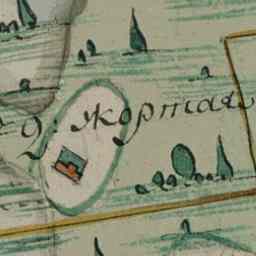 д: жортая